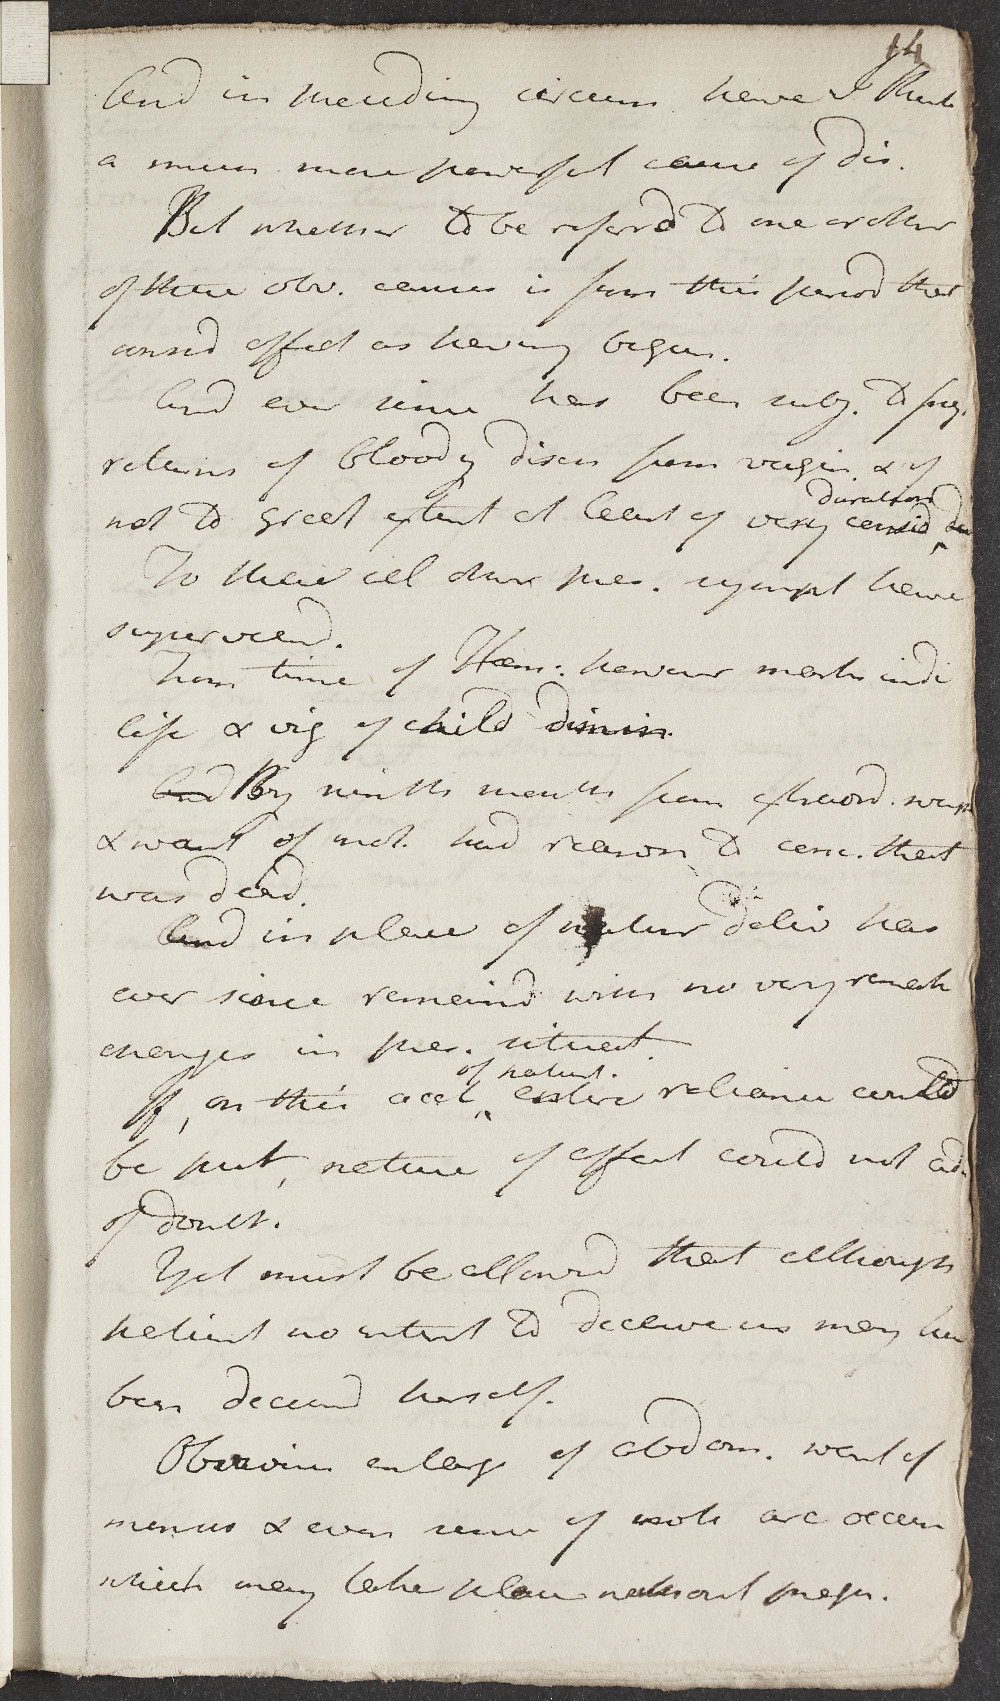 14
And in preceding circum have I think
a much more powerful cause of dis.
But whether to be referrd to one or other
of these obv. causes is from this period that
consid effect as having begun.
And ever since has been subj. to freq.
returns of bloody disch from vagina & if
duration
not to great extent at least of very consid
To these all other pres. sympt have
superveend.
From time of Hæm: however marks indi
life & vig of child dimin.
And By ninth month from extraord. weight
& want of mot. had reason to conc. that
was dead.
And in place of natur deliv has
ever since remaind with no very remark
changes in pres. situat.
of natur.
If, on this acct entire reliance could
be put, nature of affect could not ad.
of doubt.
Yet must be allowd that although
patient no intent to deceive us may have
been deceivd herself.
Obvious enlarg of abdom. want of
menses & even sense of mot. are occurr
which may take place without pregn.